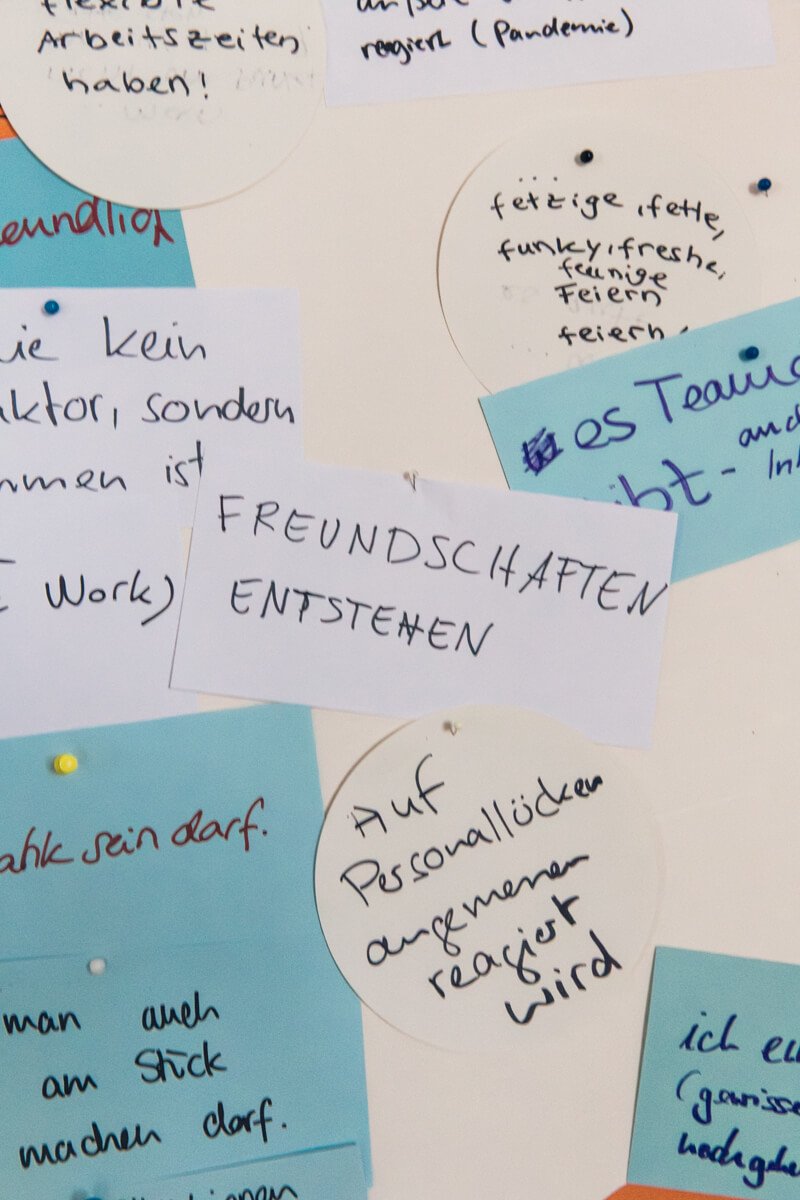 Arbeitszeiten
haben!
reagiert (Pandemie)
eundlich
fetzige, fette,
funky, freshe,
feunige
Feiern
feiern
ie kein
aktor, sondern
mmen ist
Work)
es Team
and
ibt -
FREUNDSCHAFTEN
ENTSTEHEN
Auf
Personallücken
angemessen
reagiert
wird
ahk sein darf.
man auch
am Stück
machen darf.
ich eu
(gewisse
nachgehe